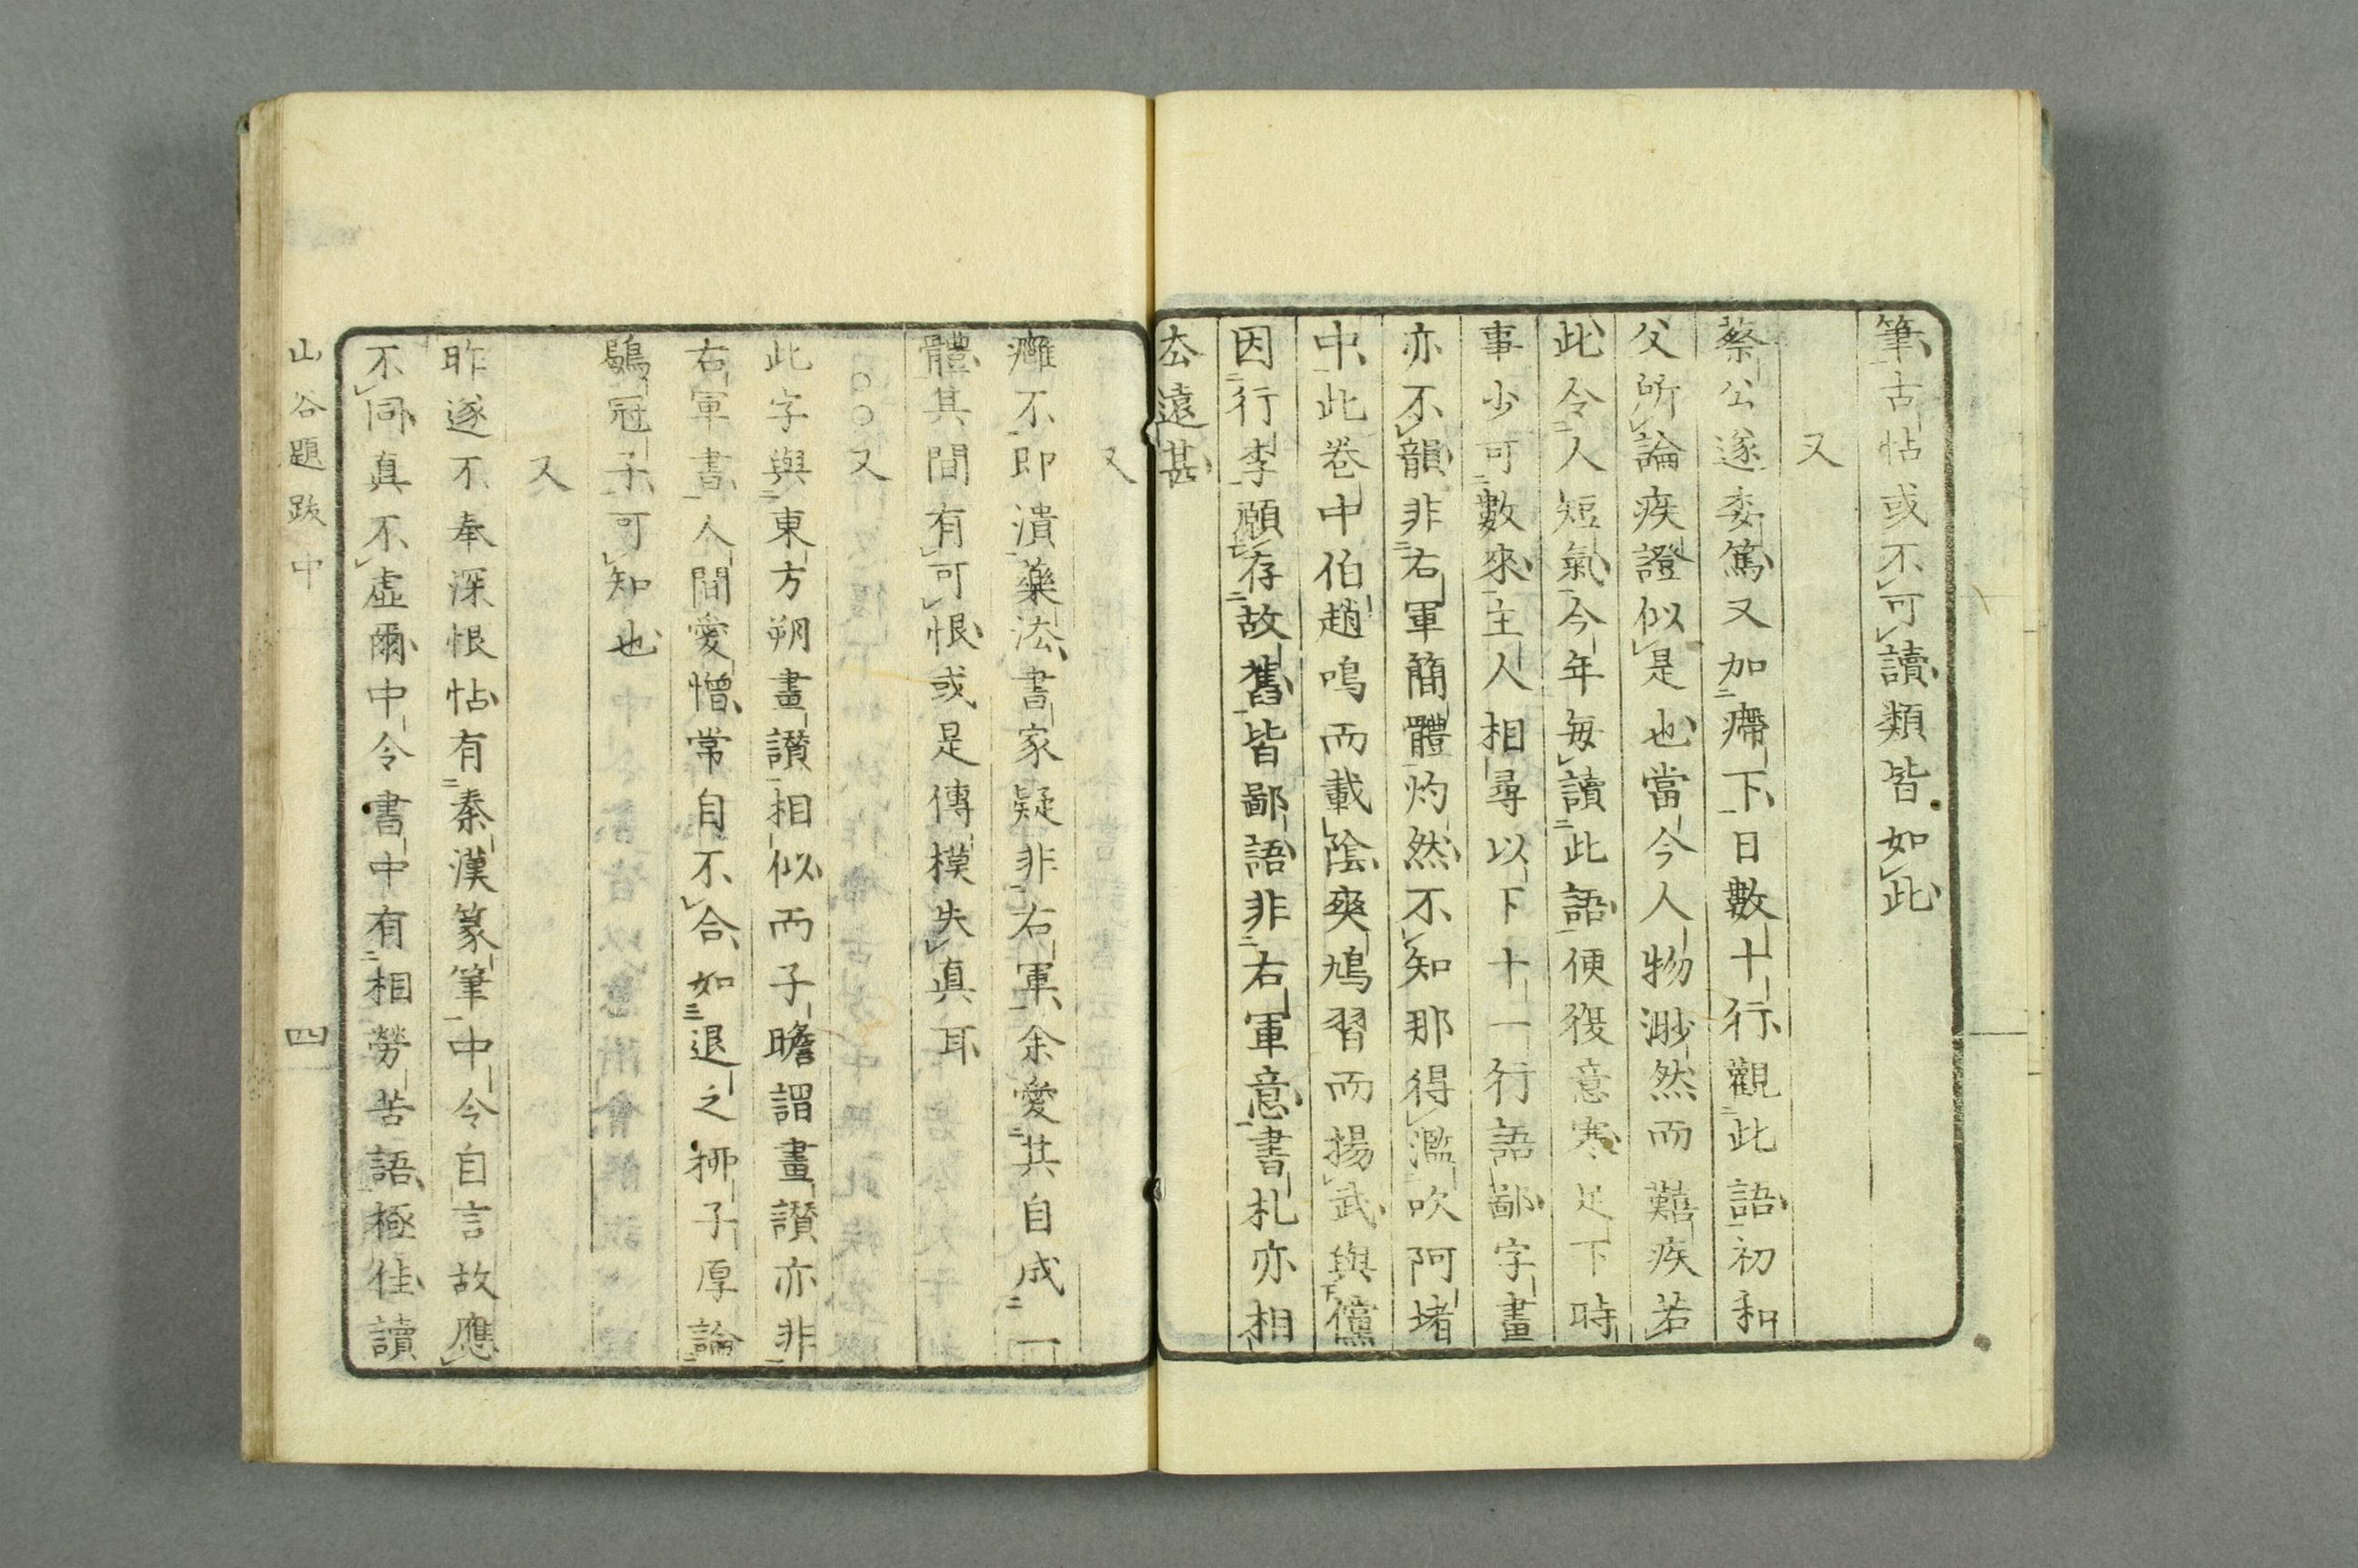 筆古帖或不可讀類皆如此
又
蔡公遂委篤又加㿃下日數十行觀此語初和
父所論疾證似是也當今人物渺然而艱疾若
此令人短氣今年每讀此語便復意寒足下時
事少可數來主人相尋以下十一行語鄙字畫
亦不韻非右軍簡體灼然不知那得濫吹阿堵
中此卷中伯趙鳴而載陰爽鳩習而揚武與儻
因行李願存故舊皆鄙語非右軍意書札亦相
去遠甚
又
癰不即潰藥法書家疑非右軍余愛其自成一
體其間有可恨或是傳模失真耳
○○又
此字與東方朔畫讃相似而子瞻謂畫讃亦非
右軍書人間愛憎常自不合如退之柳子厚論
鶡冠子可知也
又
昨遂不奉深恨帖有秦漢篆筆中令自言故應
不同真不虛爾中令書中有相勞苦語極佳讀
山谷題跋中
四